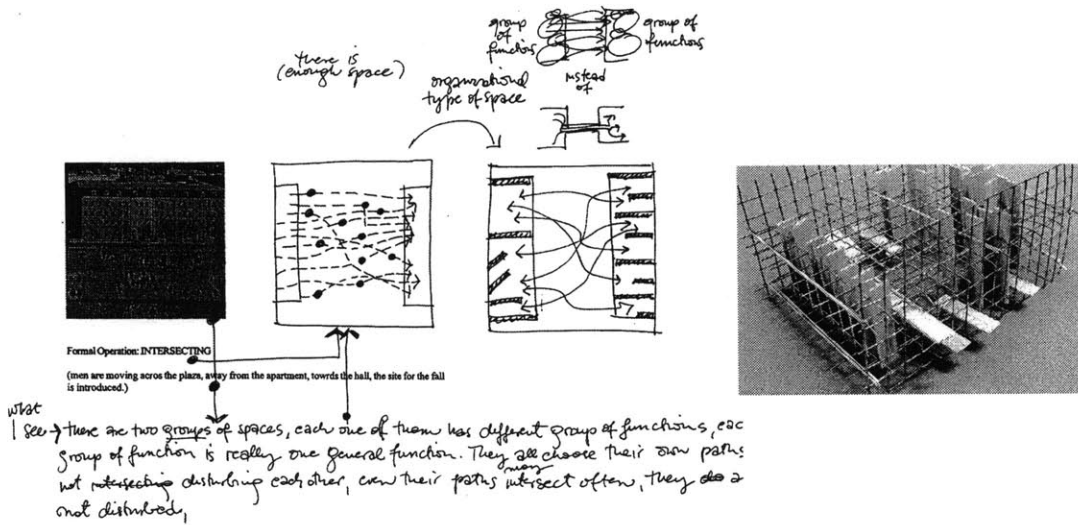 group of functions
group of functions
there is
(enough space)
instead of
organizational
type of space
Formal Operation: INTERSECTING
(men are moving acros the plaza, away from the apartment, towrds the hall, the site for the fall
is introduced.)
what
I see → there are two groups of spaces, each one of them has different group of functions, eac
group of function is really one general function. They all choose their own paths
not intersecting disturbing each other, even their paths may intersect often, they do a
not disturbed,